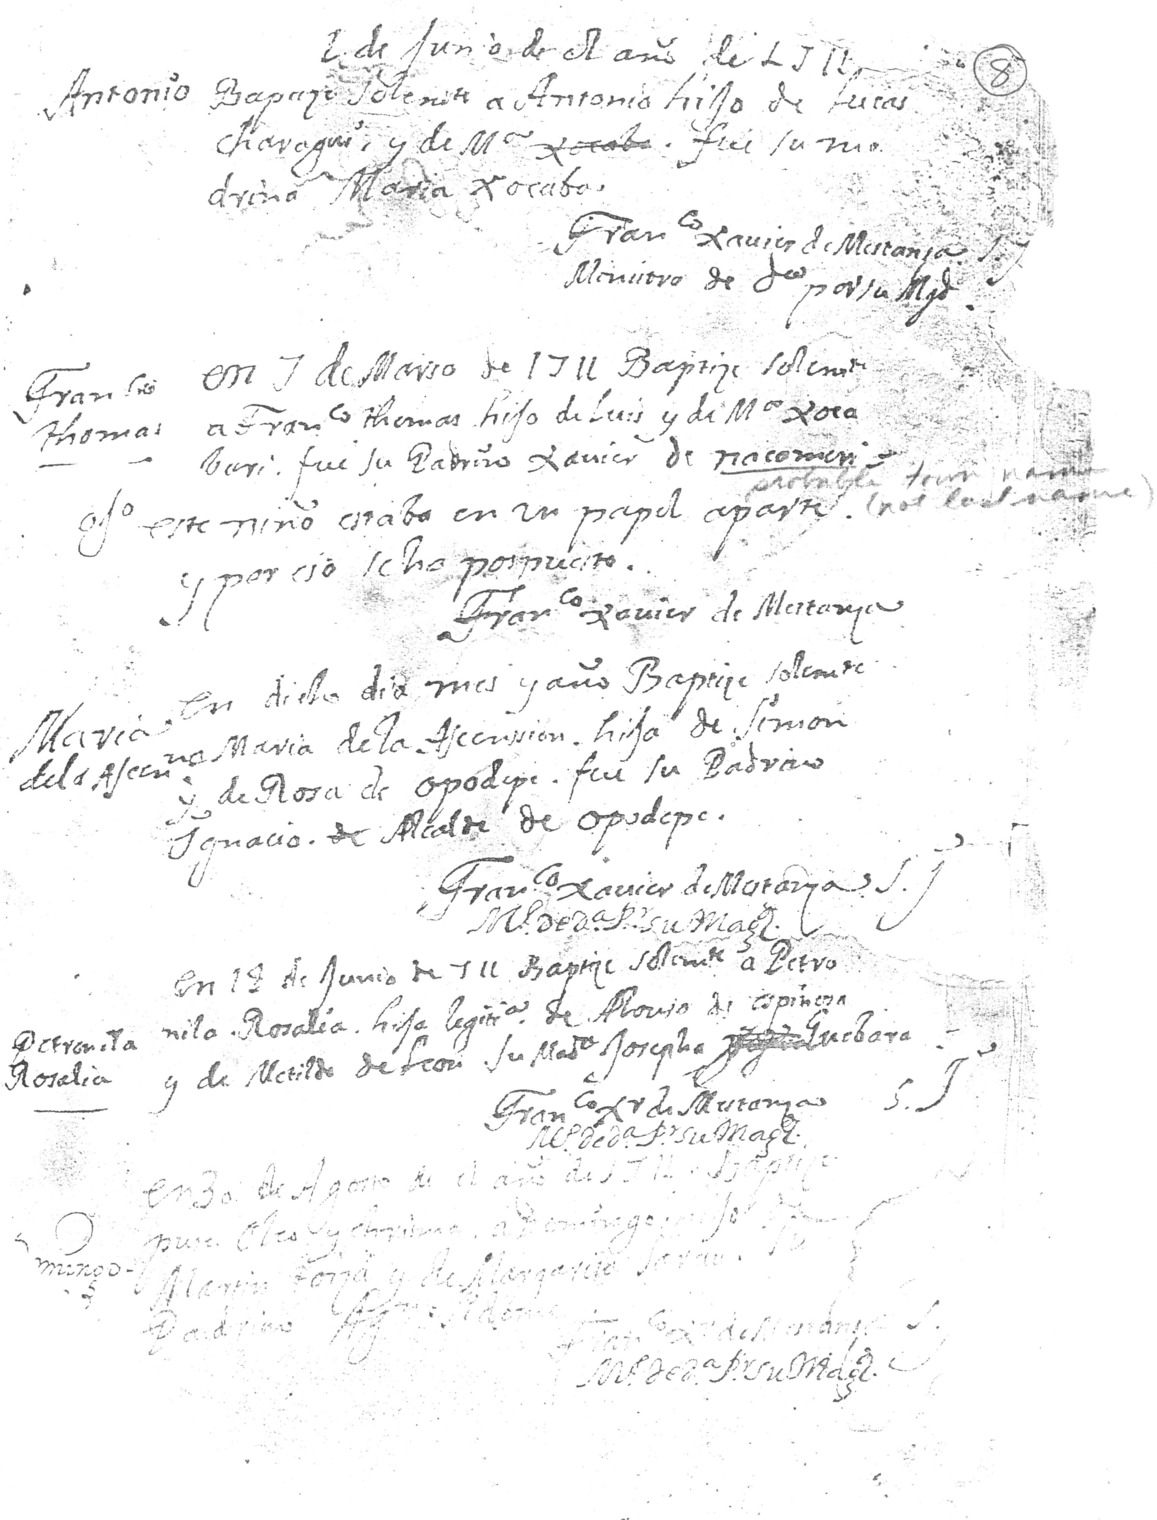 2 de Junio de el año de 1711
8
Antonio Baptize solemte a Antonio hijo de Lucas
charagui, y de Ma xocabo. fue su ma
drina Maria Xocabo.
Franco Xavier de Mestanza. S. J
Ministro de por su Mgd.
Franco en 7 de Marso de 1711 Baptize solemte
thomas a Franco thomas hijo de Luis y de Ma Xoca
bari. fue su Padrino Xavier de nacomeri
probable town name
(not last name)
ojo este niño estaba en un papel aparte.
y por eso se ha pospuesto.
Franco Xavier de Mestanza
en dicho dia mes y año Baptize solemte
Maria
a Maria de la Ascension. hija de Simon
de la Ascen
y de Rosa de Opodepe. fue su Padrino
Ignacio. de Alcalde de Opodepe.
Franco Xavier de Mestanza S. J
Mo. de da. Pr. su Magd.
en 12 de Junio de 711 Baptize solemte a Petro
Petronila nila Rosalia. hija legitia. de Alonso de espinosa
Rosalia y de Matilde de Leon. su Mada Josepha Guebara
Franco Xr de Mestanza S. J
Mo. de da. Pr. su Magd.
en 30 de Agosto de el año de 1711 Baptize
puse Oleo y chrisma. a Domingo hijo de
mingo Martin y de Margarita
Padrino
Franco Xr de Mestanza S.
Mo. de da. Pr. su Magd.